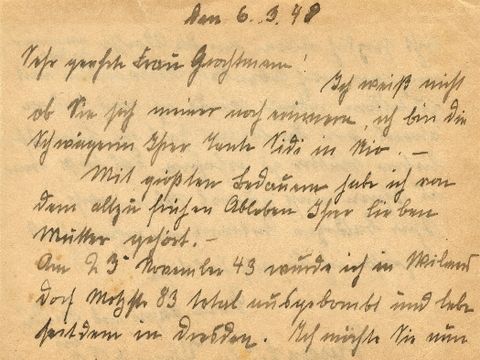 Den 6. 3. 48
Sehr geehrte Frau Grochtmann!
Ich weiß nicht
ob Sie sich meiner noch erinnern, ich bin die
Schwägerin Ihrer Tante Sidi in Rio. –
Mit größten Bedauern habe ich von
dem allzu frühen Ableben Ihrer lieben
Mutter gehört. –
Am 23 November 43 wurde ich in Wilmers
dorf Motzstr 83 total ausgebombt und lebe
seitdem in Dresden. Ich möchte Sie nun